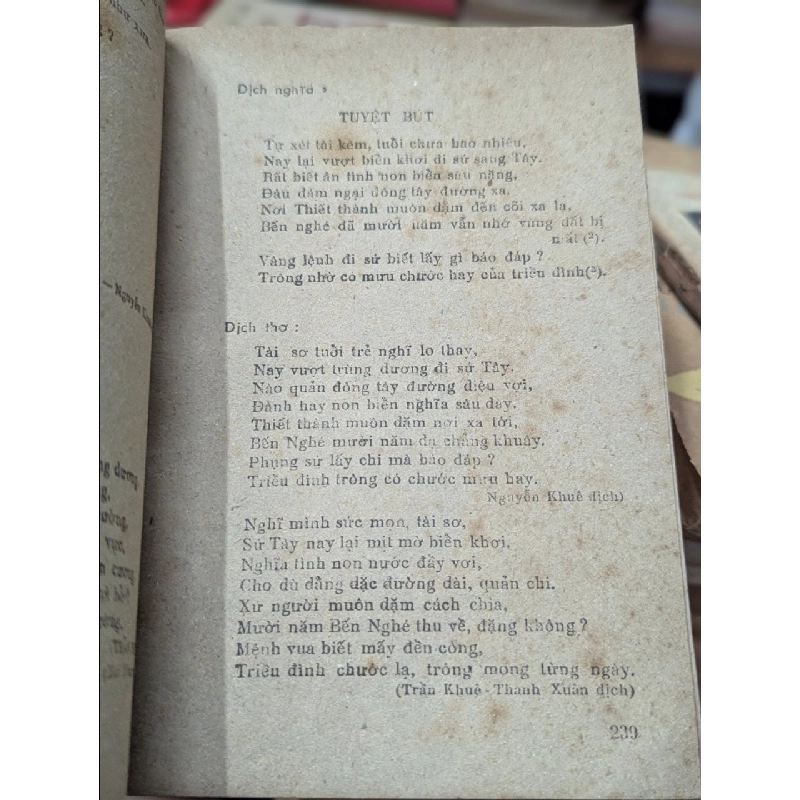 Dịch nghĩa :
TUYỆT BÚT
Tự xét tài kém, tuổi chưa bao nhiêu,
Nay lại vượt biển khơi đi sứ sang Tây.
Rất biết ân tình non biển sâu nặng,
Đâu dám ngại đông tây đường xa.
Nơi Thiết thành muôn dặm đến cõi xa lạ,
Bến nghé đã mười năm vẫn nhớ vùng đất bị
mất (²).
Vâng lệnh đi sứ biết lấy gì báo đáp ?
Trông nhờ có mưu chước hay của triều đình(²).
Dịch thơ :
Tài sơ tuổi trẻ nghĩ lo thay,
Nay vượt trùng dương đi sứ Tây.
Nào quản đông tây đường diệu vợi,
Đành hay non biển nghĩa sâu dày.
Thiết thành muôn dặm nơi xa tới,
Bến Nghé mười năm dạ chẳng khuây.
Phụng sứ lấy chi mà báo đáp ?
Triều đình trông có chước mưu hay.
Nguyễn Khuê dịch)
Nghĩ mình sức mọn, tài sơ,
Sứ Tây nay lại mịt mờ biển khơi.
Nghĩa tình non nước đầy vơi,
Cho dù dằng dặc đường dài, quản chi.
Xứ người muôn dặm cách chia,
Mười năm Bến Nghé thu về, đặng không ?
Mệnh vua biết mấy đền công,
Triều đình chước lạ, trông mong từng ngày.
(Trần Khuê - Thanh Xuân dịch)
239